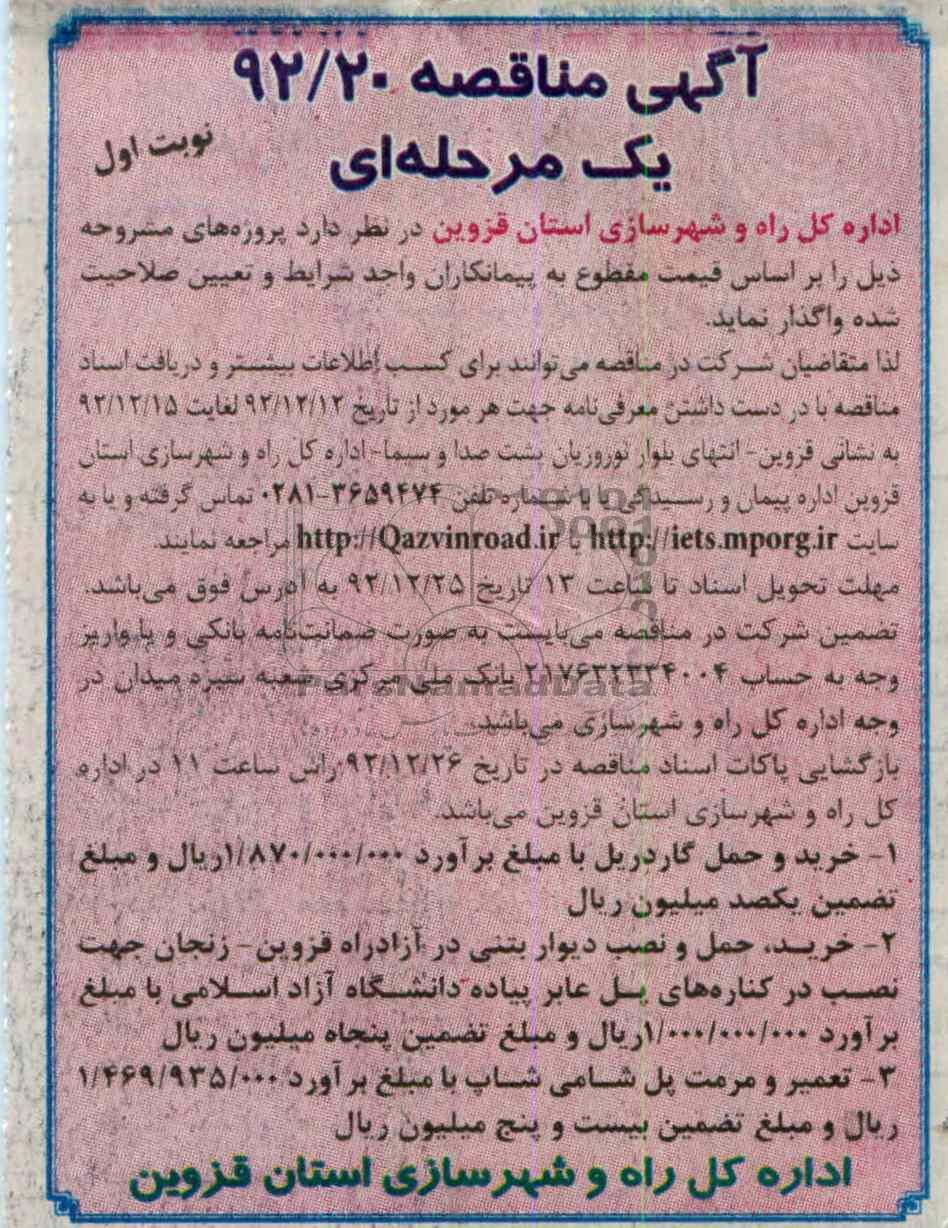 آگهی مناقصه ۹۲/۲۰
یک مرحله‌ای
نوبت اول
اداره کل راه و شهرسازی استان قزوین در نظر دارد پروژه‌های مشروحه
ذیل را بر اساس قیمت مقطوع به پیمانکاران واجد شرایط و تعیین صلاحیت
شده واگذار نماید.
لذا متقاضیان شرکت در مناقصه می‌توانند برای کسب اطلاعات بیشتر و دریافت اسناد
مناقصه با در دست داشتن معرفی‌نامه جهت هر مورد از تاریخ ۹۲/۱۲/۱۲ لغایت ۹۲/۱۲/۱۵
به نشانی قزوین- انتهای بلوار نوروزیان پشت صدا و سیما- اداره کل راه و شهرسازی استان
قزوین اداره پیمان و رسیدگی با شماره تلفن ۳۶۵۹۴۷۴-۰۲۸۱ تماس گرفته و یا به
سایت http://iets.mporg.ir یا http://Qazvinroad.ir مراجعه نمایند.
مهلت تحویل اسناد تا ساعت ۱۳ تاریخ ۹۲/۱۲/۲۵ به آدرس فوق می‌باشد.
تضمین شرکت در مناقصه می‌بایست به صورت ضمانت‌نامه بانکی و یا واریز
وجه به حساب ۲۱۷۶۳۲۳۳۴۰۰۴ بانک ملی مرکزی شعبه سبزه میدان در
وجه اداره کل راه و شهرسازی می‌باشد.
بازگشایی پاکات اسناد مناقصه در تاریخ ۹۲/۱۲/۲۶ راس ساعت ۱۱ در اداره
کل راه و شهرسازی استان قزوین می‌باشد.
۱- خرید و حمل گاردریل با مبلغ برآورد ۱/۸۷۰/۰۰۰/۰۰۰ریال و مبلغ
تضمین یکصد میلیون ریال
۲- خرید، حمل و نصب دیوار بتنی در آزادراه قزوین- زنجان جهت
نصب در کناره‌های پل عابر پیاده دانشگاه آزاد اسلامی با مبلغ
برآورد ۱/۰۰۰/۰۰۰/۰۰۰ریال و مبلغ تضمین پنجاه میلیون ریال
۳- تعمیر و مرمت پل شامی شاپ با مبلغ برآورد ۱/۴۶۹/۹۳۵/۰۰۰
ریال و مبلغ تضمین بیست و پنج میلیون ریال
اداره کل راه و شهرسازی استان قزوین
ParsNamadData